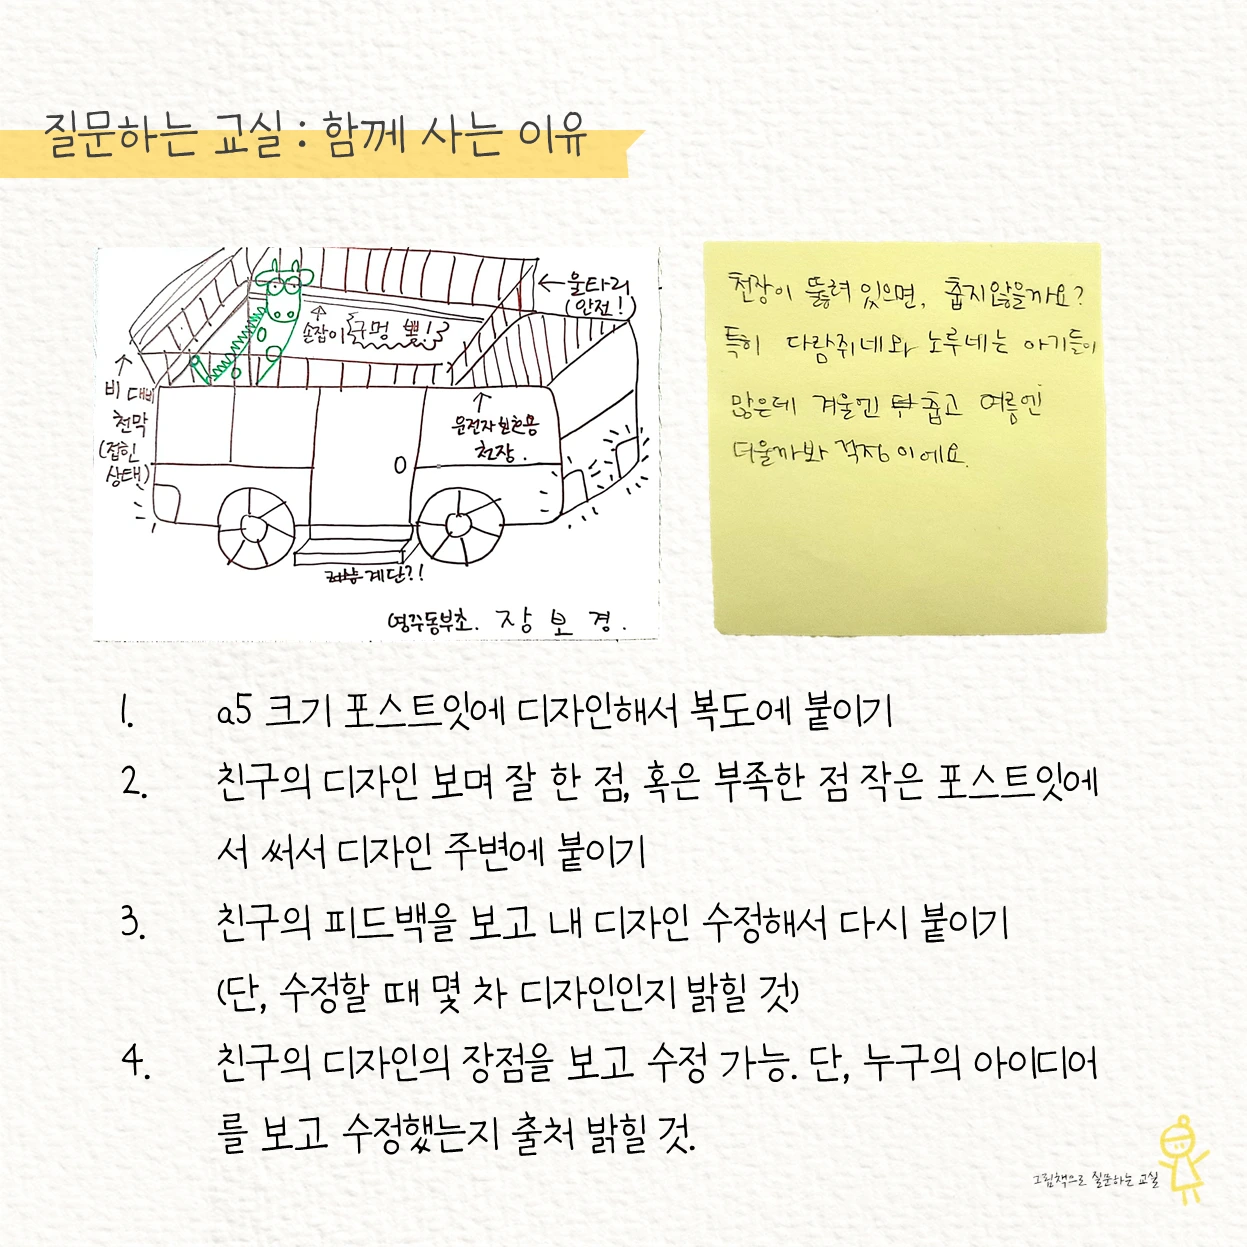 질문하는 교실 : 함께 사는 이유
← 울타리
(안전!)
손잡이 구멍 뽕!
비 대비
천막
(접힌
상태)
운전자 보호용
천장.
계단?!
영주동부초. 장 보 경.
천장이 뚫려 있으면, 춥지않을까요?
특히 다람쥐네와 노루네는 아기들이
많은데 겨울엔 춥고 여름엔
더울까봐 걱정이에요.
1. a5 크기 포스트잇에 디자인해서 복도에 붙이기
2. 친구의 디자인 보며 잘 한 점, 혹은 부족한 점 작은 포스트잇에
서 써서 디자인 주변에 붙이기
3. 친구의 피드백을 보고 내 디자인 수정해서 다시 붙이기
(단, 수정할 때 몇 차 디자인인지 밝힐 것)
4. 친구의 디자인의 장점을 보고 수정 가능. 단, 누구의 아이디어
를 보고 수정했는지 출처 밝힐 것.
그림책으로 질문하는 교실